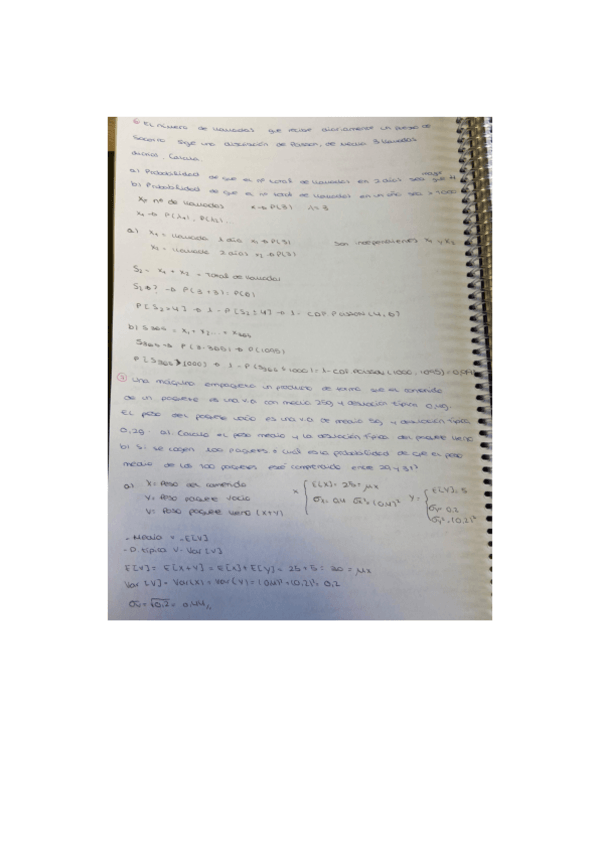 ⑥ El número de llamadas que recibe diariamente un puesto de
Socorro sigue una distribución de Poisson, de media 3 llamadas
diarias. Calcula
a) Probabilidad de que el nº total de llamadas en 2 días sea mayor que 4
b) Probabilidad de que el nº total de llamadas en un año sea > 1000
nº de llamadas x → P(3) λ = 3
x₁ → P(λ₁), P(λ₂)...
a) x₁ = llamada 1 día x₁ → P(3) Son independientes x₁ y x₂
x₂ = llamada 2 días x₂ → P(3)
S₂ = x₁ + x₂ = total de llamadas
S₂ → ? → P(3+3) = P(6)
P[S₂>4] → 1 - P[S₂≤4] → 1 - CDF Poisson (4, 6)
b) S₃₆₅ = x₁ + x₂ ... + x₃₆₅
S₃₆₅ → P(3·365) → P(1095)
P[S₃₆₅ > 1000] → 1 - P[S₃₆₅ ≤ 1000] = 1 - CDF Poisson (1000, 1095) =
⑦ Una máquina empaqueta un producto de forma que el contenido
de un paquete es una v.a con media 25g y desviación típica 0,4g.
El peso del paquete vacío es una v.a de media 5g y desviación típica
0,2g. a) Calcula el peso medio y la desviación típica del paquete lleno
b) Si se cogen 100 paquetes ¿cuál es la probabilidad de que el peso
medio de los 100 paquetes esté comprendido entre y 31?
a) X = Peso del contenido x { E[X] = 25 = μx Y = { E[Y] = 5
Y = Peso paquete vacío σx = 0,4 σx² = (0,4)² σy = 0,2
V = Peso paquete lleno (X+Y) σy² = (0,2)²
- Media = E[V]
- D. típica V = Var[V]
E[V] = E[X+Y] = E[X] + E[Y] = 25 + 5 = 30 = μx
Var[V] = Var(X) + Var(Y) = (0,4)² + (0,2)² = 0,2
σv = √0,2 = 0,44